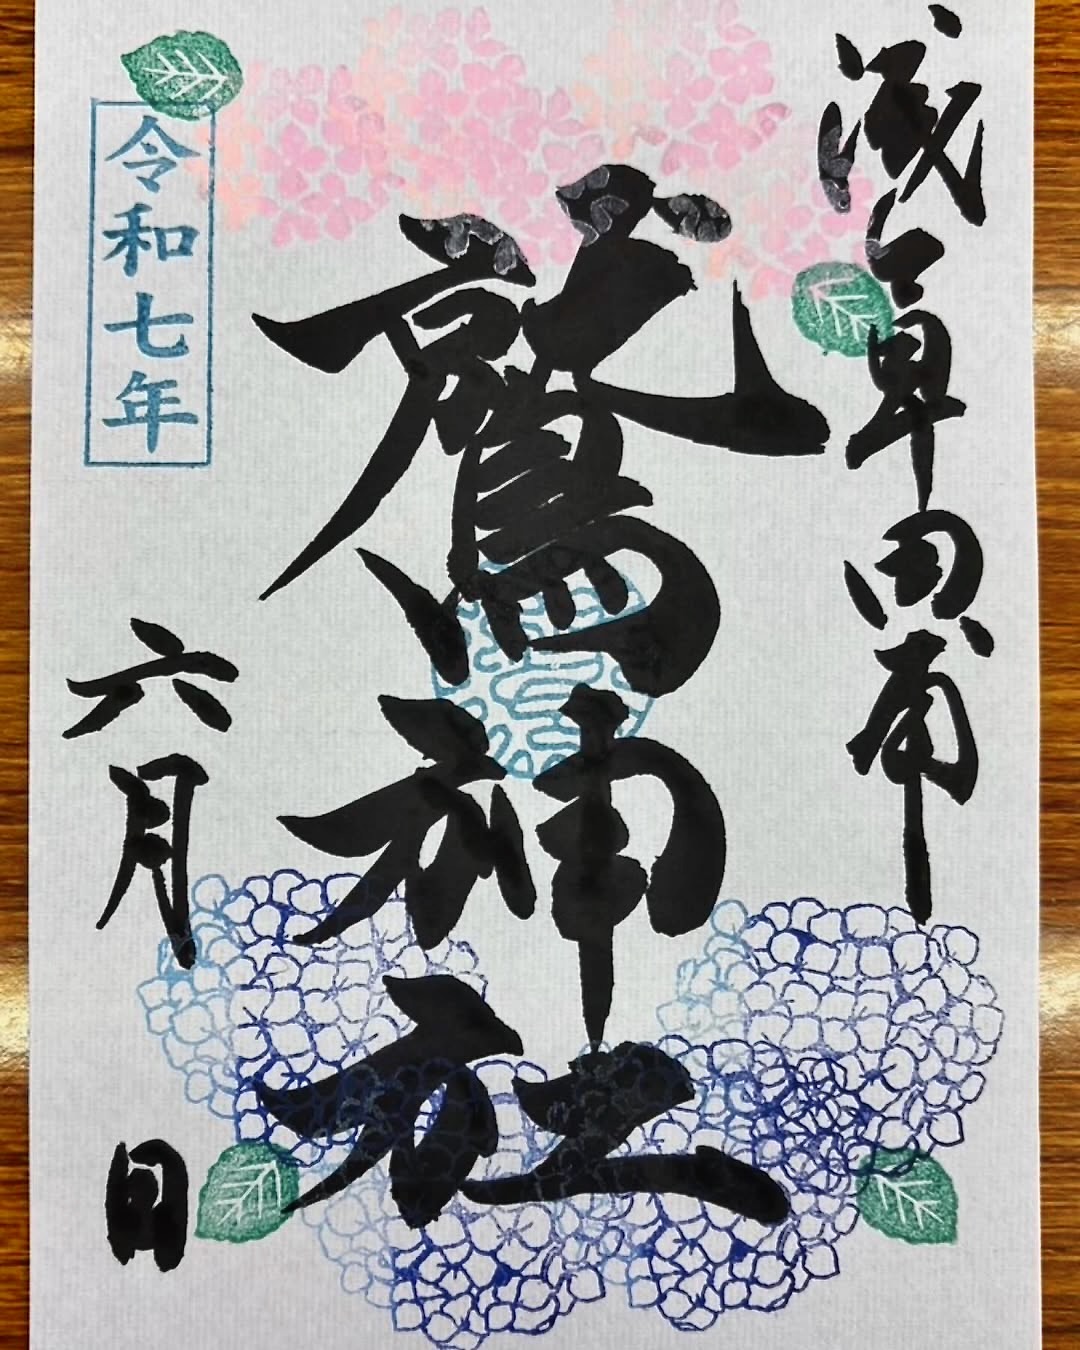 浅草田甫
鷲神社
令和七年
六月
日